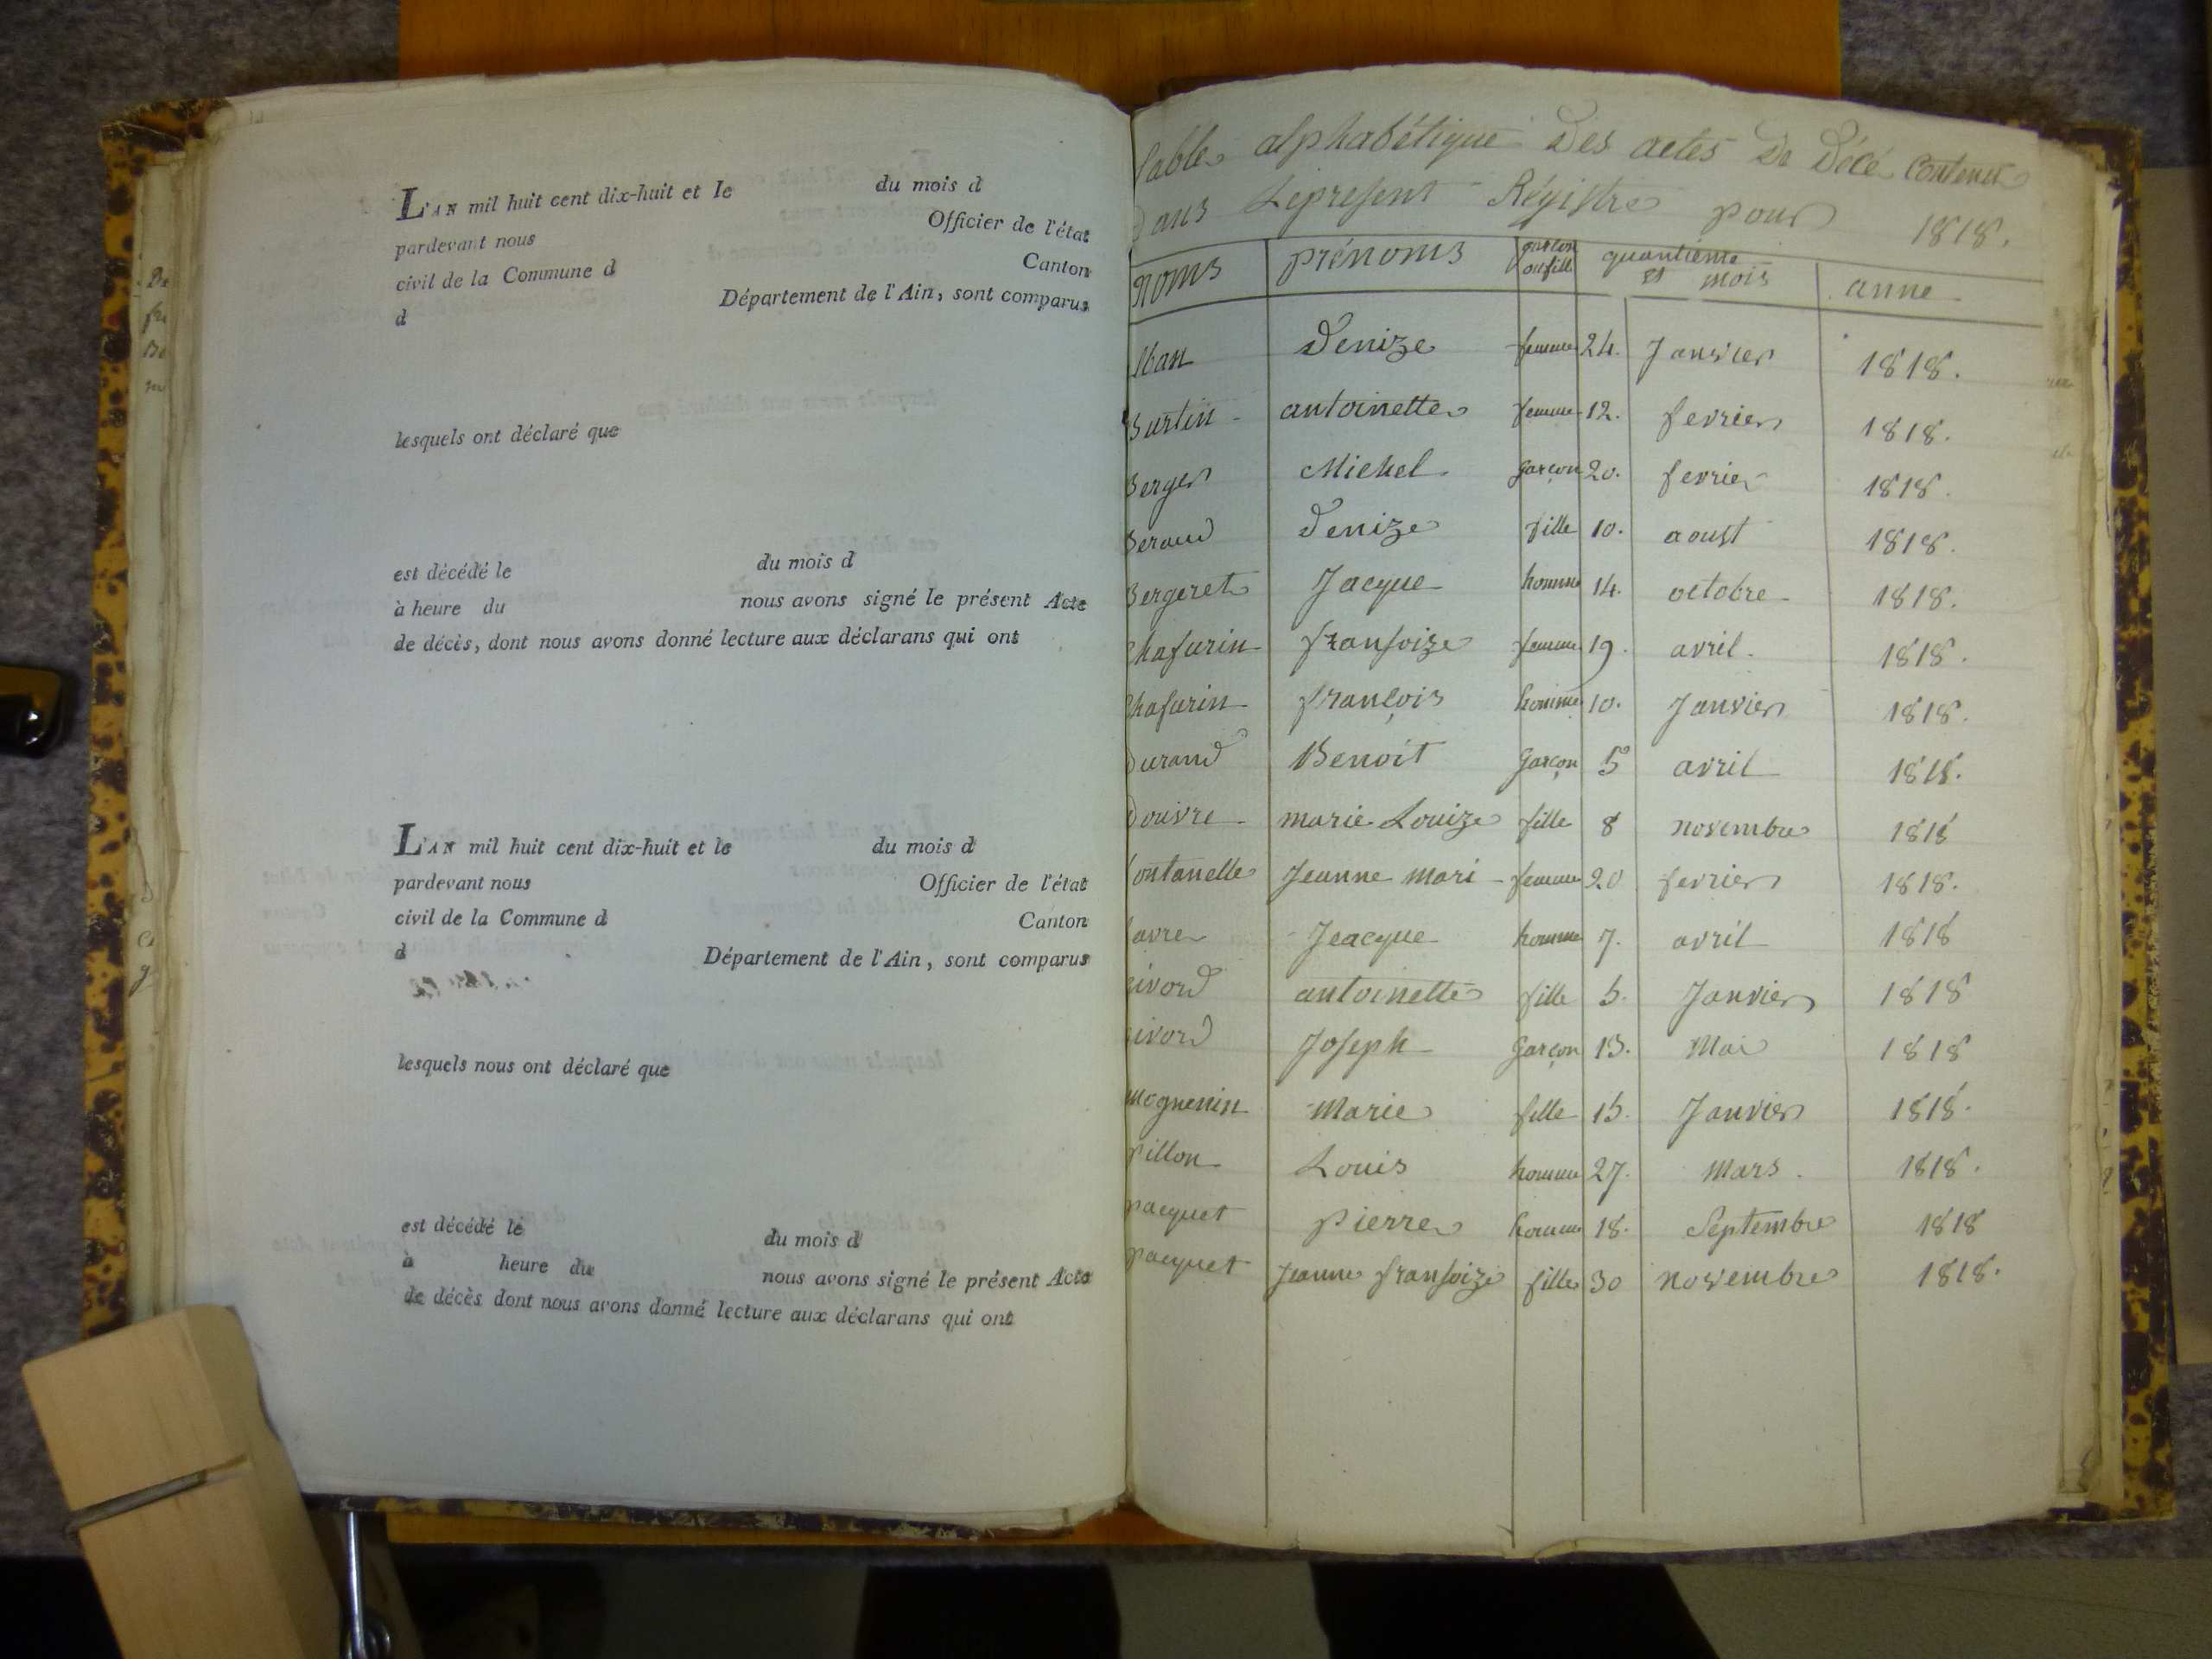 L'AN mil huit cent dix-huit et le du mois d
pardevant nous Officier de l'état
civil de la Commune d Canton
d Département de l'Ain, sont comparus
lesquels ont déclaré que
est décédé le du mois d
à heure du nous avons signé le présent Acte
de décès, dont nous avons donné lecture aux déclarans qui ont
L'AN mil huit cent dix-huit et le du mois d
pardevant nous Officier de l'état
civil de la Commune d Canton
d Département de l'Ain, sont comparus
lesquels nous ont déclaré que
est décédé le du mois d
à heure du nous avons signé le présent Acte
de décès dont nous avons donné lecture aux déclarans qui ont
Table alphabétique Des actes De Décé Contenus
Dans Lepresent Régistre pour 1818.
noms prénoms garçon oufille quantieme et mois anne
Denize femme 24. Janvier 1818.
Burtin antoinette femme 12. fevrier 1818.
Berger Michel garçon 20. fevrier 1818.
Beraud Denize fille 10. aoust 1818.
Bergeret Jacque homme 14. octobre 1818.
Chafurin fransoize femme 19. avril 1818.
Chafurin françois homme 10. Janvier 1818.
Durand Benoit garçon 5 avril 1818.
Douvre marie Louize fille 8 novembre 1818
fontanelle Jeanne mari femme 20 fevrier 1818.
favre Jeacque homme 7. avril 1818
givord antoinette fille 5. Janvier 1818
givord Joseph Garçon 13. Mai 1818
mognenin Marie fille 15. Janvier 1818.
pillon Louis homme 27. Mars 1818.
pacquet pierre homme 18. Septembre 1818
pacquet Jeanne fransoize fille 30 novembre 1818.